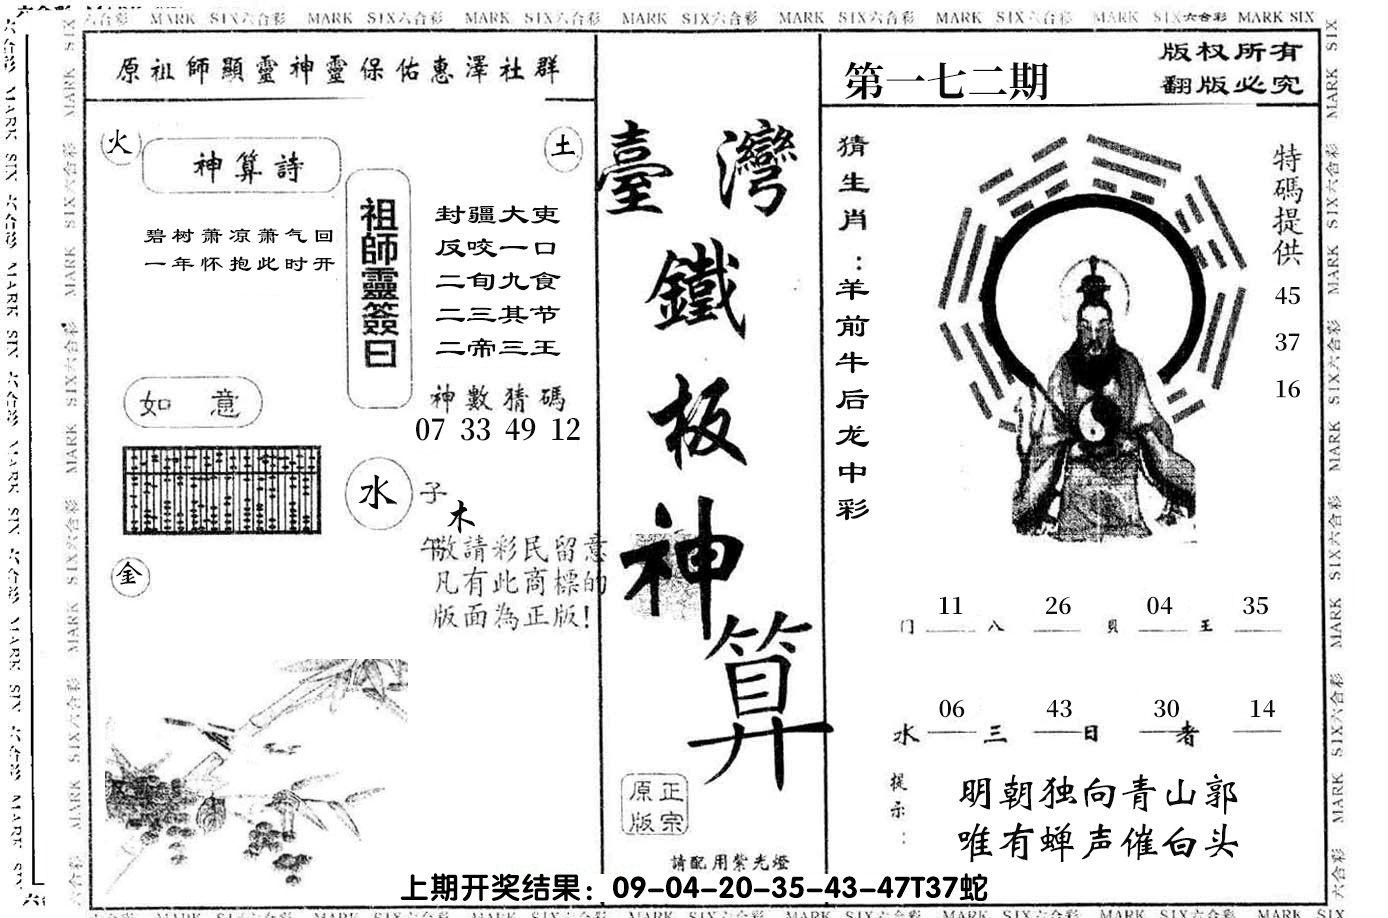 六合彩 MARK SIX六合彩 MARK SIX六合彩 MARK SIX六合彩 MARK SIX六合彩 MARK SIX六合彩 MARK SIX六合彩 MARK SIX六合彩 MARK SIX
原祖師顯靈神靈保佑惠澤社群
火
神算詩
土
碧树萧凉萧气回
一年怀抱此时开
祖師靈簽曰
封疆大吏
反咬一口
二旬九食
二三其节
二帝三王
神數猜碼
07 33 49 12
如意
水
子
木
午
金
敬請彩民留意
凡有此商標的
版面為正版!
臺灣
鐵
板
神
算
正宗
原版
請配用紫光燈
第一七二期
版权所有
翻版必究
猜生肖：羊前牛后龙中彩
特碼提供
45
37
16
11 26 04 35
门 八 貝 王
06 43 30 14
水 三 日 者
提示：
明朝独向青山郭
唯有蝉声催白头
上期开奖结果：09-04-20-35-43-47T37蛇